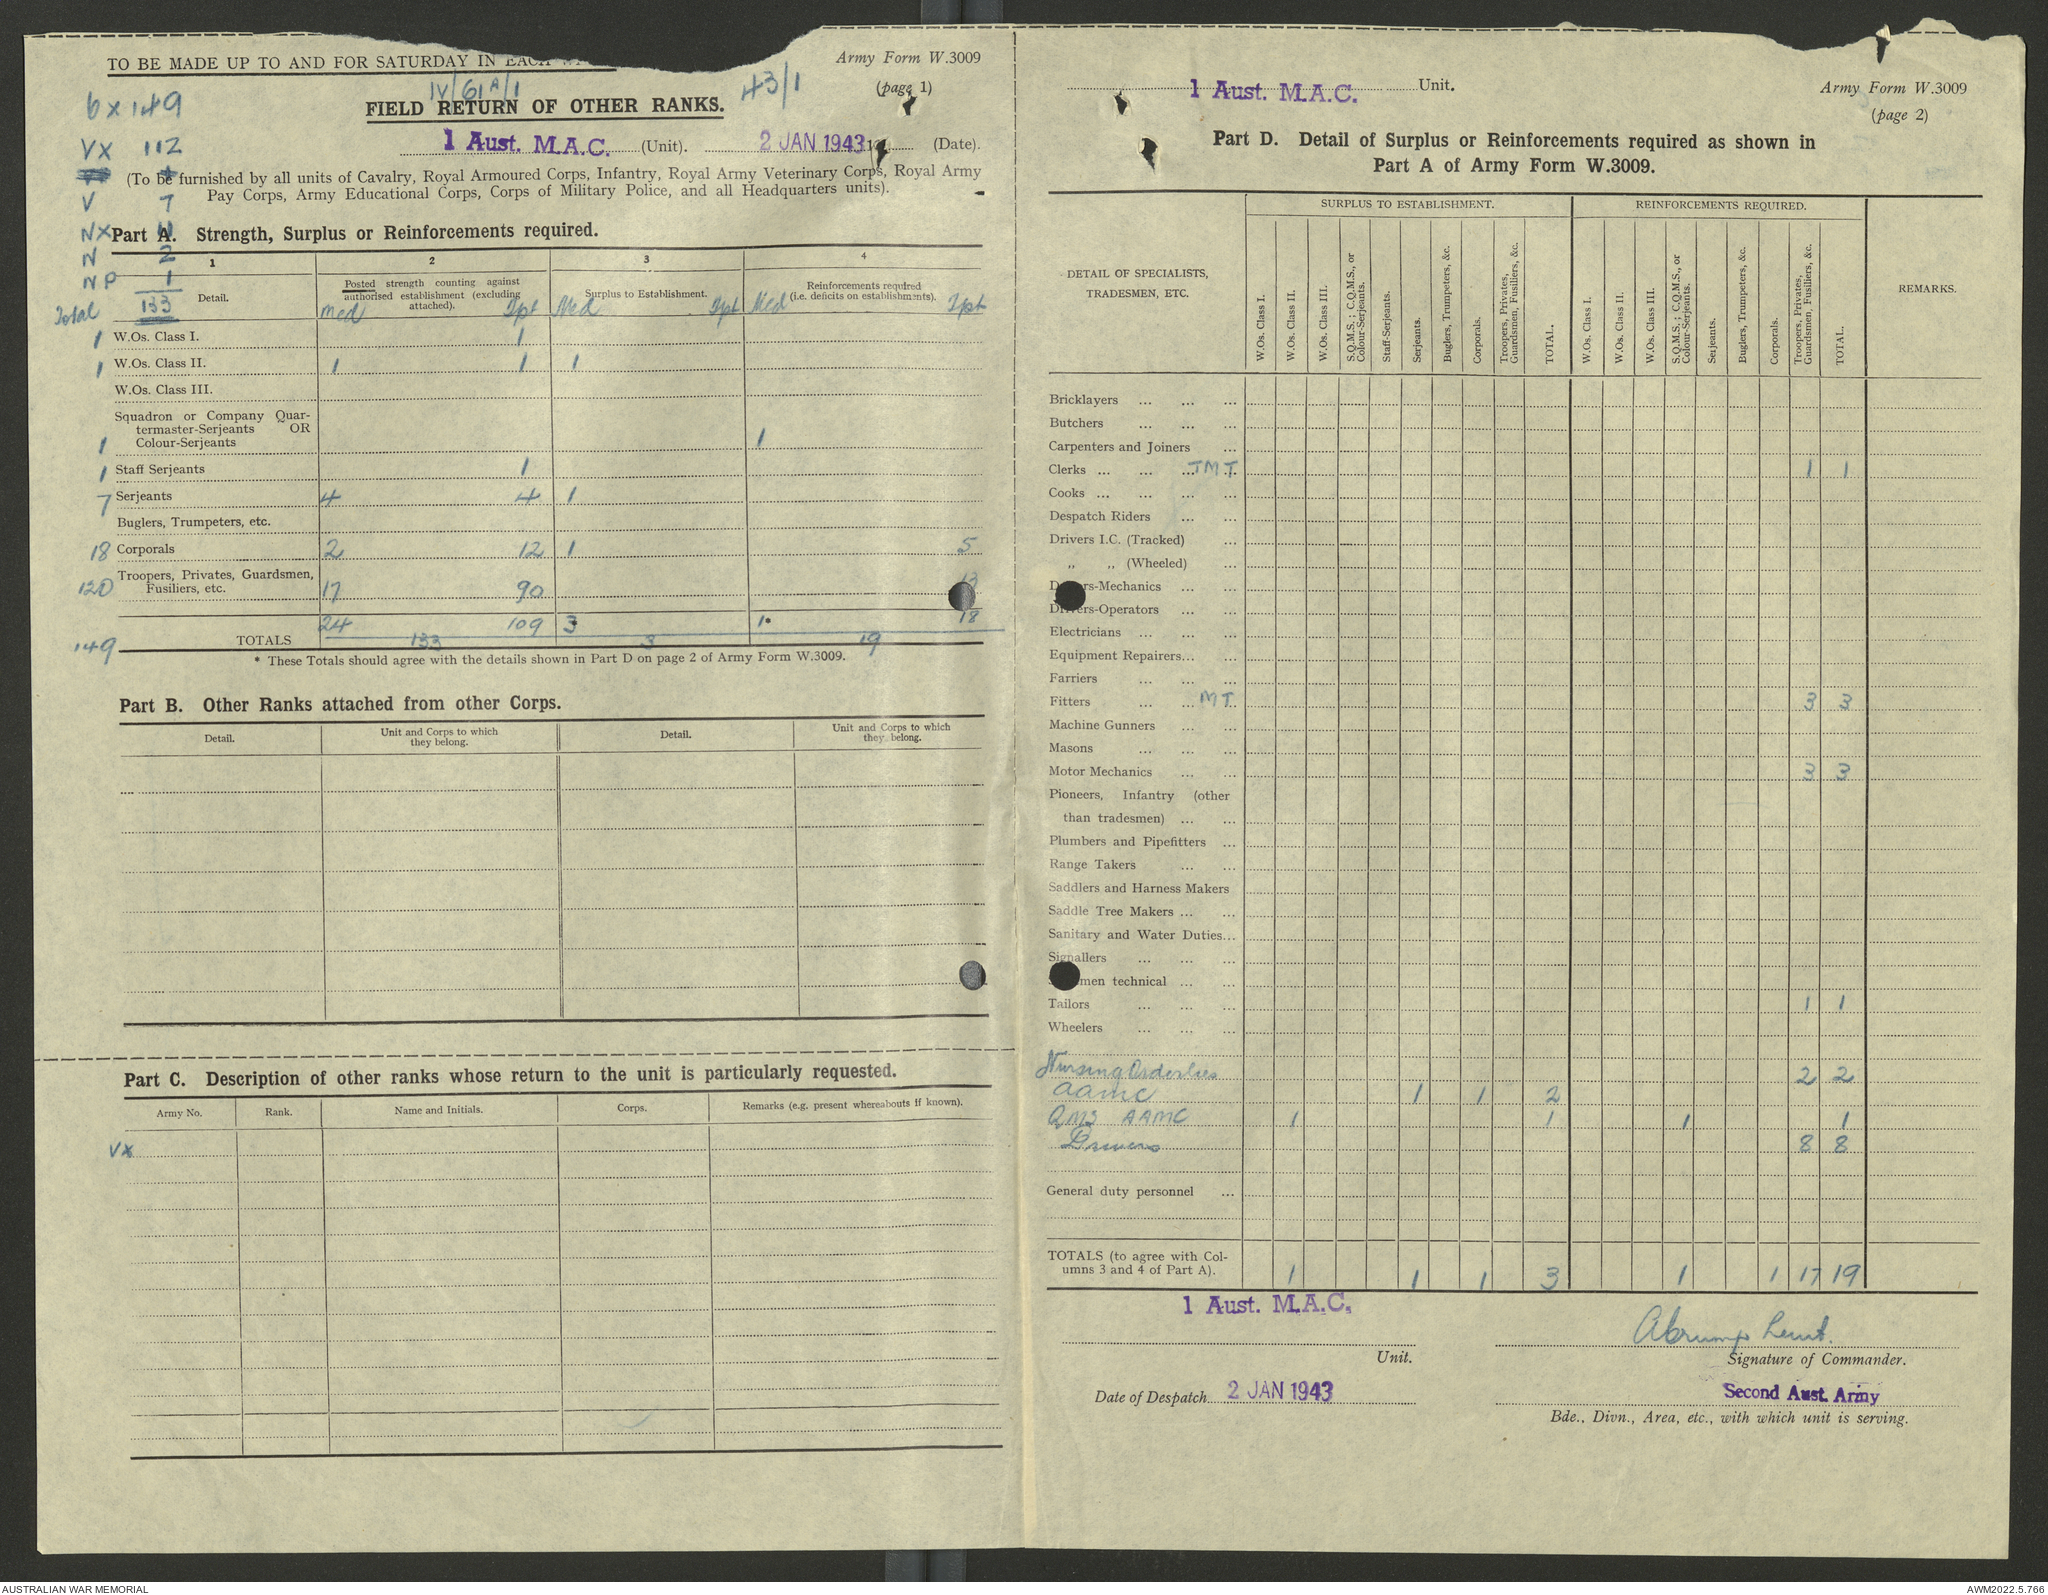 TO BE MADE UP TO AND FOR SATURDAY IN EACH
Army Form W.3009
(page 1)
6 x 149
IV/61A/1
43/1
FIELD RETURN OF OTHER RANKS.
1 Aust. M.A.C. (Unit). 2 JAN 1943 (Date).
VX 112
V 7
NX 11
N 2
NP 1
Total 133
(To be furnished by all units of Cavalry, Royal Armoured Corps, Infantry, Royal Army Veterinary Corps, Royal Army
Pay Corps, Army Educational Corps, Corps of Military Police, and all Headquarters units).
Part A. Strength, Surplus or Reinforcements required.
1 2 3 4
Detail.
Posted strength counting against
authorised establishment (excluding
attached).
Surplus to Establishment.
Reinforcements required
(i.e. deficits on establishments).
Med Tpt Med Tpt Med Tpt
1 W.Os. Class I. 1
1 W.Os. Class II. 1 1 1
W.Os. Class III.
Squadron or Company Quar-
termaster-Serjeants OR
1 Colour-Serjeants 1
1 Staff Serjeants 1
7 Serjeants 4 4 1
Buglers, Trumpeters, etc.
18 Corporals 2 12 1 5
Troopers, Privates, Guardsmen,
120 Fusiliers, etc. 17 90 13
24 109 3 1 18
149 TOTALS 133 3 19
* These Totals should agree with the details shown in Part D on page 2 of Army Form W.3009.
Part B. Other Ranks attached from other Corps.
Detail. Unit and Corps to which
they belong. Detail. Unit and Corps to which
they belong.
Part C. Description of other ranks whose return to the unit is particularly requested.
Army No. Rank. Name and Initials. Corps. Remarks (e.g. present whereabouts if known).
VX
1 Aust. M.A.C. Unit.
Army Form W.3009
(page 2)
Part D. Detail of Surplus or Reinforcements required as shown in
Part A of Army Form W.3009.
DETAIL OF SPECIALISTS,
TRADESMEN, ETC.
SURPLUS TO ESTABLISHMENT.
W.Os. Class I.
W.Os. Class II.
W.Os. Class III.
S.Q.M.S.; C.Q.M.S., or
Colour-Serjeants.
Staff-Serjeants.
Serjeants.
Buglers, Trumpeters, &c.
Corporals.
Troopers, Privates,
Guardsmen, Fusiliers, &c.
TOTAL.
REINFORCEMENTS REQUIRED.
W.Os. Class I.
W.Os. Class II.
W.Os. Class III.
S.Q.M.S.; C.Q.M.S., or
Colour-Serjeants.
Serjeants.
Buglers, Trumpeters, &c.
Corporals.
Troopers, Privates,
Guardsmen, Fusiliers, &c.
TOTAL.
REMARKS.
Bricklayers ... ... ...
Butchers ... ...
Carpenters and Joiners ...
Clerks ... ... ... TMT 1 1
Cooks ... ... ... ...
Despatch Riders ... ...
Drivers I.C. (Tracked) ...
„ „ (Wheeled) ...
Drivers-Mechanics ... ...
Drivers-Operators ... ...
Electricians ... ... ...
Equipment Repairers... ...
Farriers ... ... ...
Fitters ... ... MT 3 3
Machine Gunners ... ...
Masons ... ... ...
Motor Mechanics ... ... 3 3
Pioneers, Infantry (other
than tradesmen) ... ...
Plumbers and Pipefitters ...
Range Takers ... ...
Saddlers and Harness Makers
Saddle Tree Makers ... ...
Sanitary and Water Duties...
Signallers ... ... ...
men technical ... ...
Tailors ... ... ... 1 1
Wheelers ... ... ...
Nursing Orderlies 2 2
AAMC 1 1 2
QMS AAMC 1 1 1 1
Drivers 8 8
General duty personnel ...
TOTALS (to agree with Col-
umns 3 and 4 of Part A). 1 1 1 3 1 1 17 19
1 Aust. M.A.C.
Unit.
Lieut.
Signature of Commander.
Date of Despatch 2 JAN 1943
Second Aust. Army
Bde., Divn., Area, etc., with which unit is serving.
AUSTRALIAN WAR MEMORIAL
AWM2022.5.766